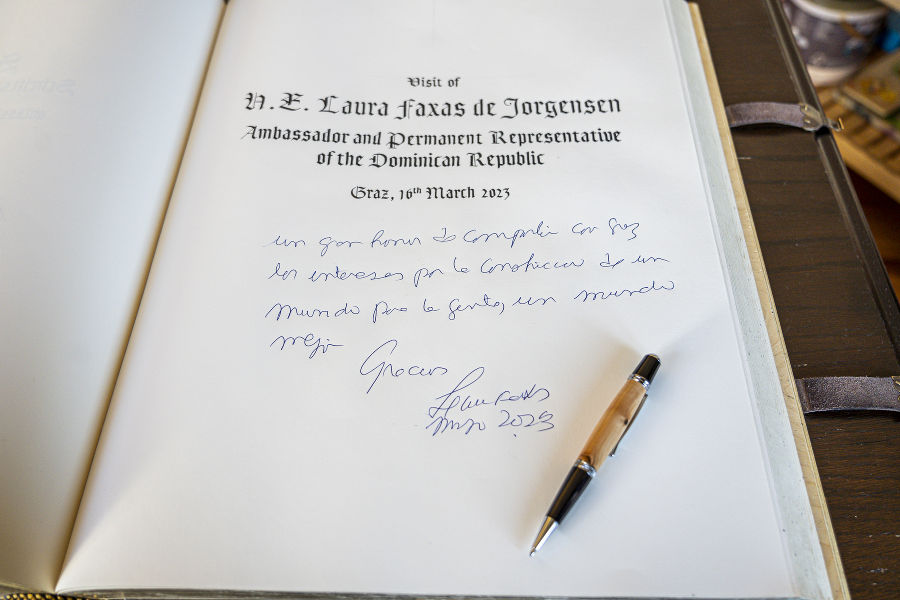 Visit of
H.E. Laura Faxas de Jorgensen
Ambassador and Permanent Representative
of the Dominican Republic
Graz, 16th March 2023
un gran honor de compartir con Graz
los intereses por la construccion de un
mundo para la gente, un mundo
mejor
Gracias
Laura Faxas
2023